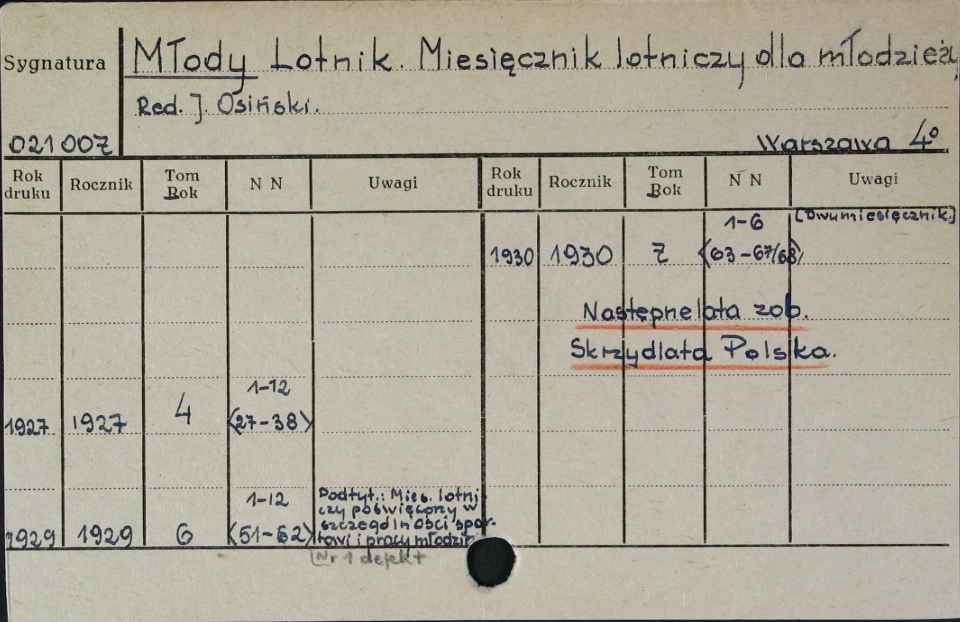 Sygnatura
Młody Lotnik. Miesięcznik lotniczy dla młodzieży
Red. J. Osiński.
021007
Warszawa 4°
Rok druku Rocznik Tom Rok N N Uwagi Rok druku Rocznik Tom Rok N N Uwagi
1-6 [Dwumiesięcznik.]
1930 1930 7 <63-67/68>
Następne lata zob.
Skrzydlata Polska.
1-12
1927 1927 4 <27-38>
1-12 Podtyt.: Mies. lotni-
czy poświęcony w
szczególności spor-
1929 1929 6 <51-62> towi i pracy młodzież.
Nr 1 defekt